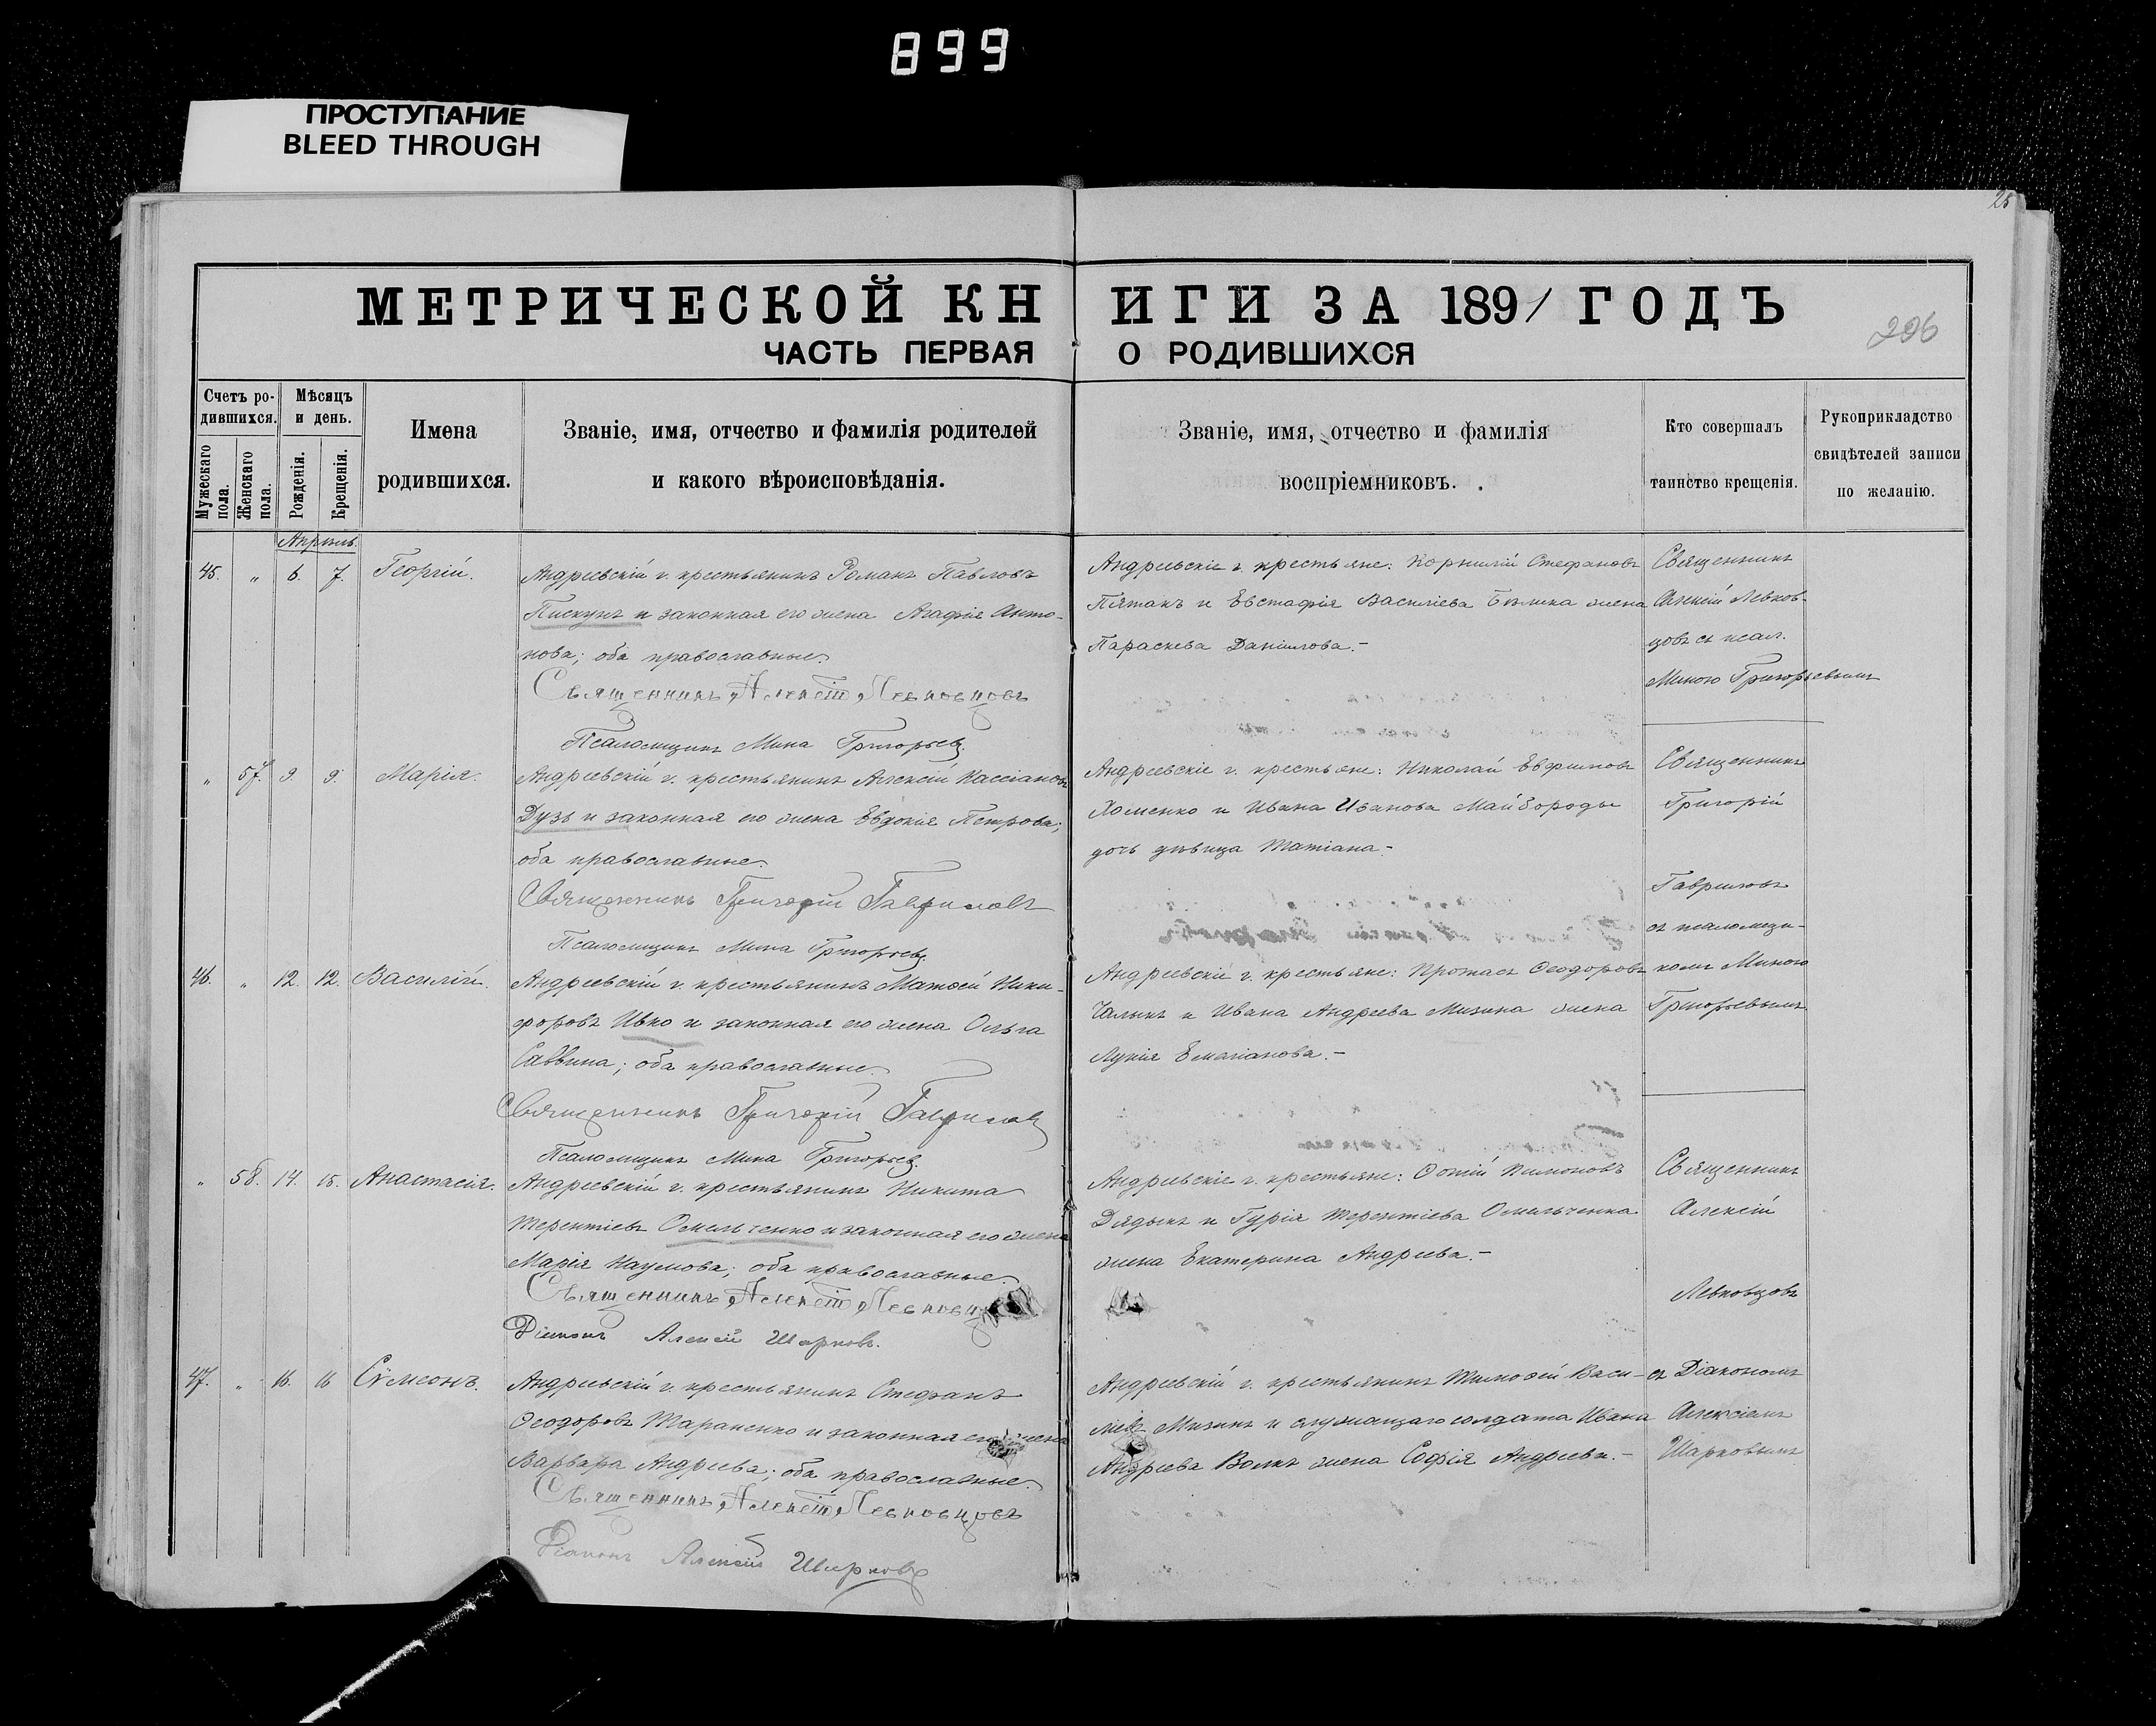 899
ПРОСТУПАНИЕ
BLEED THROUGH
25
МЕТРИЧЕСКОЙ КНИГИ ЗА 1891 ГОДЪ
206
ЧАСТЬ ПЕРВАЯ О РОДИВШИХСЯ
Счетъ ро-
дившихся.
Мужескаго пола.
Женскаго пола.
Мѣсяцъ
и день.
Рожденія.
Крещенія.
Имена
родившихся.
Званіе, имя, отчество и фамилія родителей
и какого вѣроисповѣданія.
Званіе, имя, отчество и фамилія
воспріемниковъ.
Кто совершалъ
таинство крещенія.
Рукоприкладство
свидѣтелей записи
по желанію.
Апрѣль.
45. " 6. 7. Георгій.
Андреевскій г. крестьянинъ Романъ Павловъ
Пискунъ и законная его жена Агафія Анто-
нова; оба православные.
Священникъ Алексій Левковцовъ
Псаломщикъ Мина Григорьев.
Андреевскіе г. крестьяне: Корнилій Стефановъ
Пятакъ и Евстафія Василіева Бѣлика жена
Параскева Даніилова.-
Священникъ
Алексій Левков-
цовъ съ псал.
Миною Григорьевымъ
" 57. 9. 9. Марія.
Андреевскій г. крестьянинъ Алексій Кассіановъ
Дузь и законная его жена Евдокія Петрова;
оба православные.
Священникъ Григорій Гавриловъ
Псаломщикъ Мина Григорьев.
Андреевскіе г. крестьяне: Николай Евфимовъ
Хоменко и Ивана Иванова Майбороды
дочь дѣвица Татіана.-
Священникъ
Григорій
Гавриловъ
съ псаломщи-
комъ Миною
Григорьевымъ
46. " 12. 12. Василій.
Андреевскій г. крестьянинъ Матѳей Ники-
форовъ Ивко и законная его жена Ольга
Саввина; оба православные.
Священникъ Григорій Гаврилов
Псаломщикъ Мина Григорьев.
Андреевскіе г. крестьяне: Протасъ Ѳеодоровъ
Чалыкъ и Ивана Андреева Мизина жена
Лукія Емеліанова.-
" 58. 14. 15. Анастасія.
Андреевскій г. крестьянинъ Никита
Терентіевъ Омельченко и законная его жена
Марія Наумова; оба православные.
Священникъ Алексій Левковц
Діаконъ Алексій Шарковъ.
Андреевскіе г. крестьяне: Фотій Кимоновъ
Дядыкъ и Гурія Терентіева Омельченка
жена Екатерина Андреева.-
Священникъ
Алексій
Левковцовъ
съ Діакономъ
Алексіемъ
Шарковымъ
47. " 16. 16 Сѵмеонъ.
Андреевскій г. крестьянинъ Стефанъ
Ѳеодоровъ Тараненко и законная его жена
Варвара Андреева; оба православные.
Священникъ Алексій Левковцовъ
Діаконъ Алексій Шарковъ
Андреевскій г. крестьянинъ Тимоѳей Васи-
ліевъ Мизинъ и служащаго солдата Ивана
Андреева Волкъ жена Софія Андреева.-